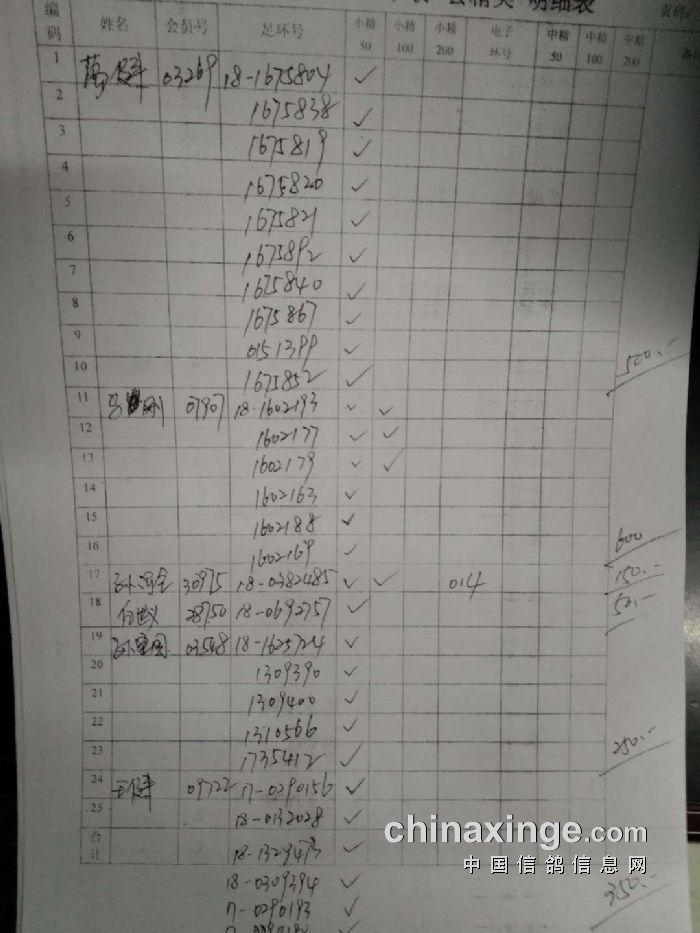 明细表
编码 姓名 会员号 足环号 小精50 小精100 小精200 电子环号 中精50 中精100 中精200
1 03269 18-1675804 ✓
2 1675838 ✓
3 1675819 ✓
4 1675820 ✓
5 1675821 ✓
6 1675892 ✓
7 1675840 ✓
8 1675867 ✓
9 0151399 ✓
10 1675852 ✓ 500.-
11 07907 18-1602193 ✓ ✓
12 1602177 ✓ ✓
13 1602179 ✓ ✓
14 1602163 ✓
15 1602188 ✓
16 1602169 ✓ 600
17 30975 18-0382485 ✓ ✓ 014 150.-
18 28750 18-0692757 ✓ 50.-
19 03548 18-1625724 ✓
20 1309390 ✓
21 1309400 ✓
22 1310566 ✓
23 1735412 ✓ 250.-
24 王健 09722 17-0290156 ✓
25 18-0132028 ✓
合计 18-1329473 ✓
18-0309394 ✓ 350.-
17-0290193 ✓
chinaxinge.com
中国信鸽信息网